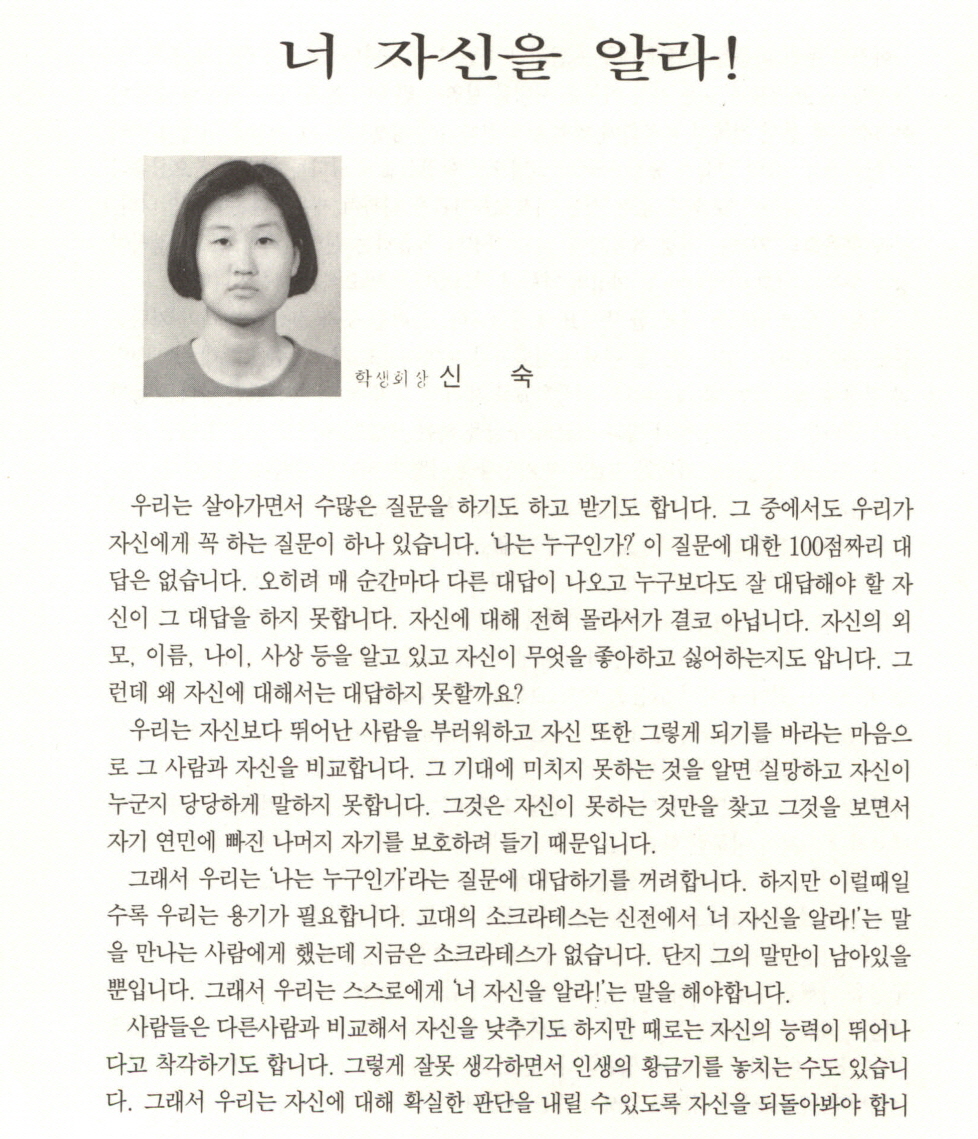 너 자신을 알라!
학생회장 신 숙
우리는 살아가면서 수많은 질문을 하기도 하고 받기도 합니다. 그 중에서도 우리가
자신에게 꼭 하는 질문이 하나 있습니다. ‘나는 누구인가?’ 이 질문에 대한 100점짜리 대
답은 없습니다. 오히려 매 순간마다 다른 대답이 나오고 누구보다도 잘 대답해야 할 자
신이 그 대답을 하지 못합니다. 자신에 대해 전혀 몰라서가 결코 아닙니다. 자신의 외
모, 이름, 나이, 사상 등을 알고 있고 자신이 무엇을 좋아하고 싫어하는지도 압니다. 그
런데 왜 자신에 대해서는 대답하지 못할까요?
우리는 자신보다 뛰어난 사람을 부러워하고 자신 또한 그렇게 되기를 바라는 마음으
로 그 사람과 자신을 비교합니다. 그 기대에 미치지 못하는 것을 알면 실망하고 자신이
누군지 당당하게 말하지 못합니다. 그것은 자신이 못하는 것만을 찾고 그것을 보면서
자기 연민에 빠진 나머지 자기를 보호하려 들기 때문입니다.
그래서 우리는 ‘나는 누구인가’라는 질문에 대답하기를 꺼려합니다. 하지만 이럴때일
수록 우리는 용기가 필요합니다. 고대의 소크라테스는 신전에서 ‘너 자신을 알라!’는 말
을 만나는 사람에게 했는데 지금은 소크라테스가 없습니다. 단지 그의 말만이 남아있을
뿐입니다. 그래서 우리는 스스로에게 ‘너 자신을 알라!’는 말을 해야합니다.
사람들은 다른사람과 비교해서 자신을 낮추기도 하지만 때로는 자신의 능력이 뛰어나
다고 착각하기도 합니다. 그렇게 잘못 생각하면서 인생의 황금기를 놓치는 수도 있습니
다. 그래서 우리는 자신에 대해 확실한 판단을 내릴 수 있도록 자신을 되돌아봐야 합니